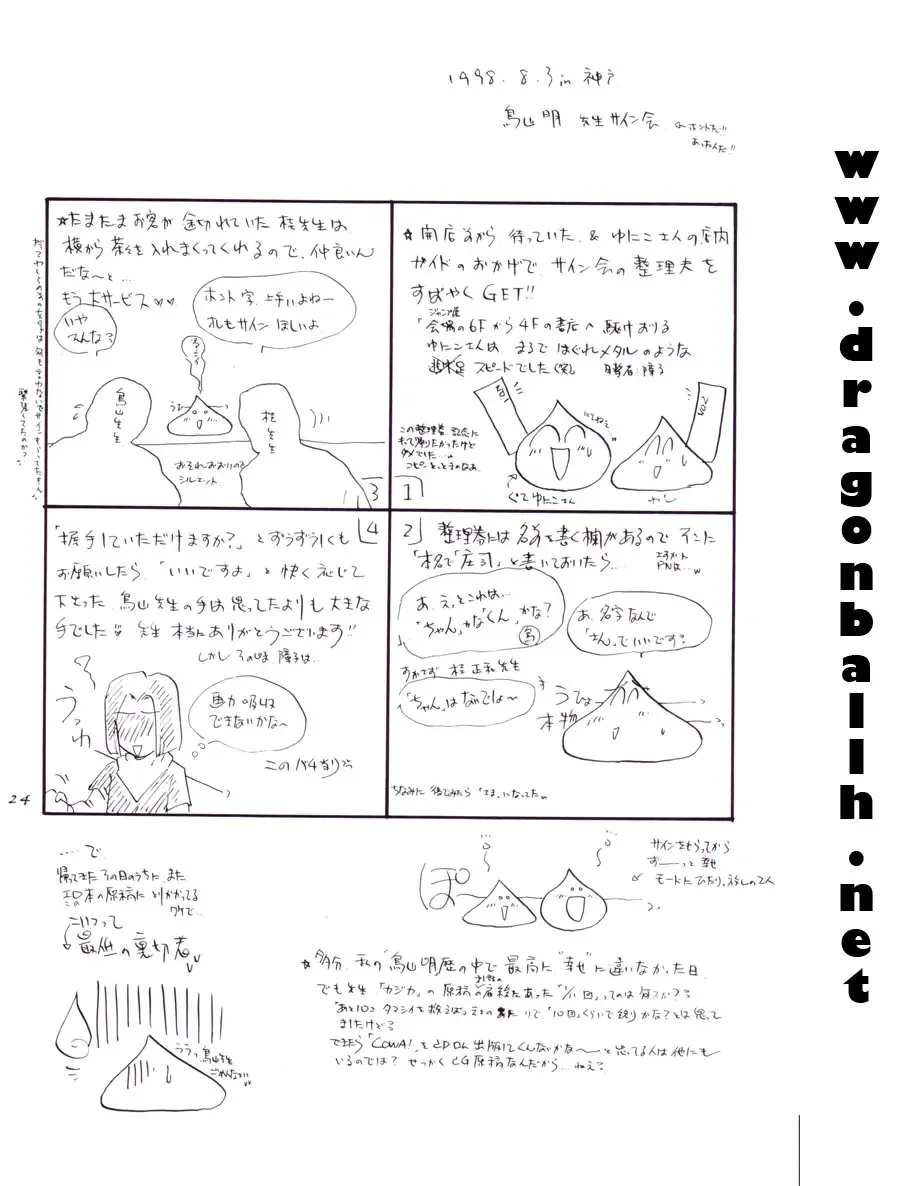 1998. 8. 3 in 神戸
鳥山明 先生サイン会
←ホントだ!!
あったんだ!!
☆開店前から待っていた & ゆにこさんの店内
ガイドのおかげで、サイン会の整理券を
すばやくGET!!
会場の6Fから4Fの書店へ駆けおりる
ゆにこさんは、まるではぐれメタルのような
スピードでした(笑)
この整理券、記念に
もって帰りたかったけど
ダメでした…
ゆにこさん
やし
1
2
整理券には名前を書く欄があるのでそこに
「本名で「庄司」と書いておいたら……
あ、えっとこれは…
「ちゃん」かな「くん」かな?
鳥
あ、名字なんで
「さん」でいいです?
すかさず 桂正和先生
「ちゃん」はないでしょ〜
うひょ
本物
ちなみに後でみたら「さま」になってた
☆たまたまお客が途切れていた。桂先生は
横から茶々を入れまくってくれるので、仲良いん
だな〜と…
もう大サービス♡♡
いや
そんな?
ホント字、上手いよねー
オレもサインほしいよ
鳥山先生
桂先生
おそれおおいので
シルエット
3
4
「握手していただけますか?」とずうずうしくも
お願いしたら、「いいですよ」と快く応じて
下さった。鳥山先生の手は思ってたよりも大きな
手でした 先生 本当にありがとうございます!!
しかしその時、障子は…
うっわ
画力吸収
できないかな〜
24
……で
帰ってきたその日のうちに、また
エロ本の原稿にとりかかってる
ワケで…
こいつって
最低の裏切者
ううっ鳥山先生
ごめんなさい
ぽ
サインをもらってから
ずーーっと幸せ
モードにひたりっぱなしの2人
☆多分、私の"鳥山明歴"の中で最高に"幸せ"に違いなかった日
でも先生「カジカ」の原稿の
ってのは何スか??
「10回」くらいで終りかな?とは思って
ましたけど?
「COWA!」を
出版してくんないかな〜〜と思ってる人は他にも
いるのでは? せっかくCG原稿なんだから…ねえ?
www.dragonballh.net